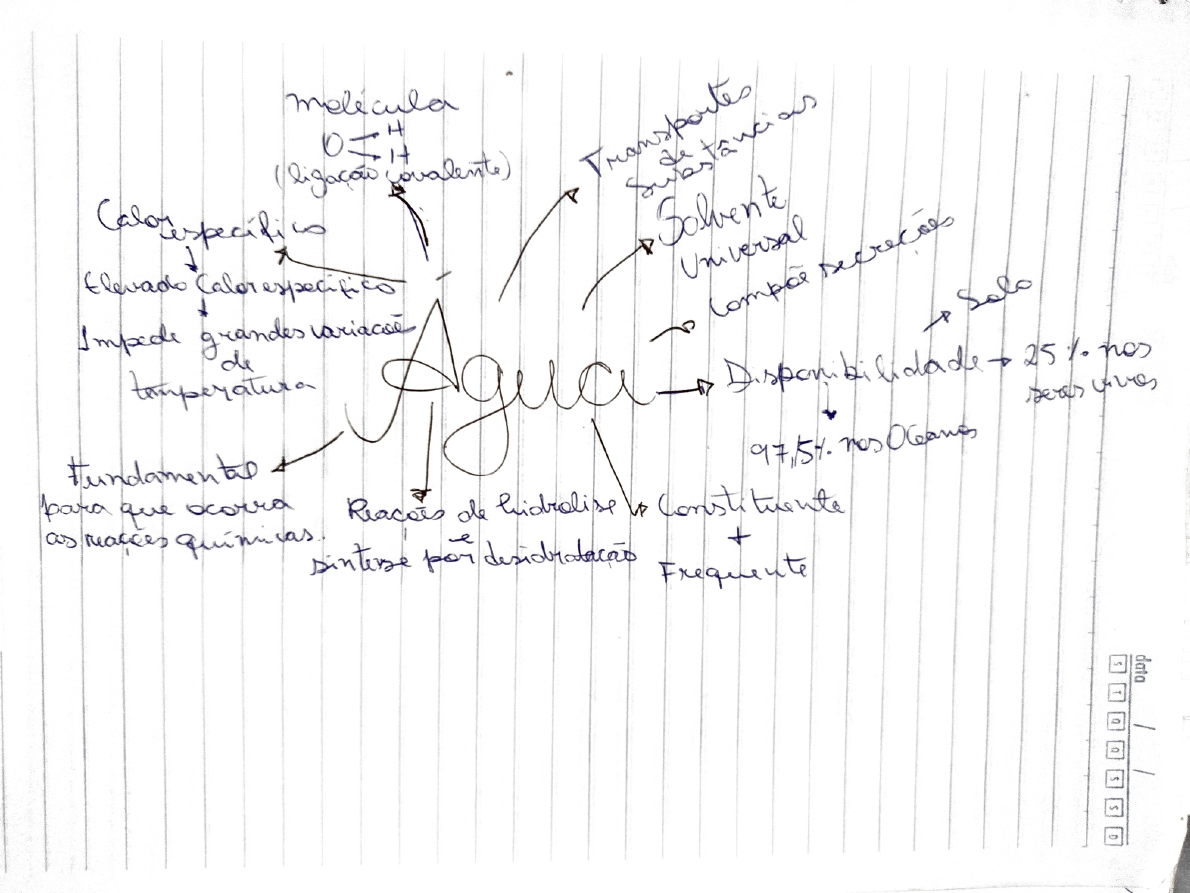 molécula
O H
H
(ligação covalente)
Transportes
de
Substâncias
Solvente
Universal
Compõe secreções
Calor
específico
Elevado Calor específico
Impede grandes variacoẽ
de
temperatura
Água
Solo
Disponibilidade → 25% nos
seres vivos
97,5% nos Oceanos
Fundamental
para que ocorra
as reações químicas.
Reações de hidrolise
e
sintese por desidratação
Constituente
+
Frequente
data / /
S T Q Q S S D